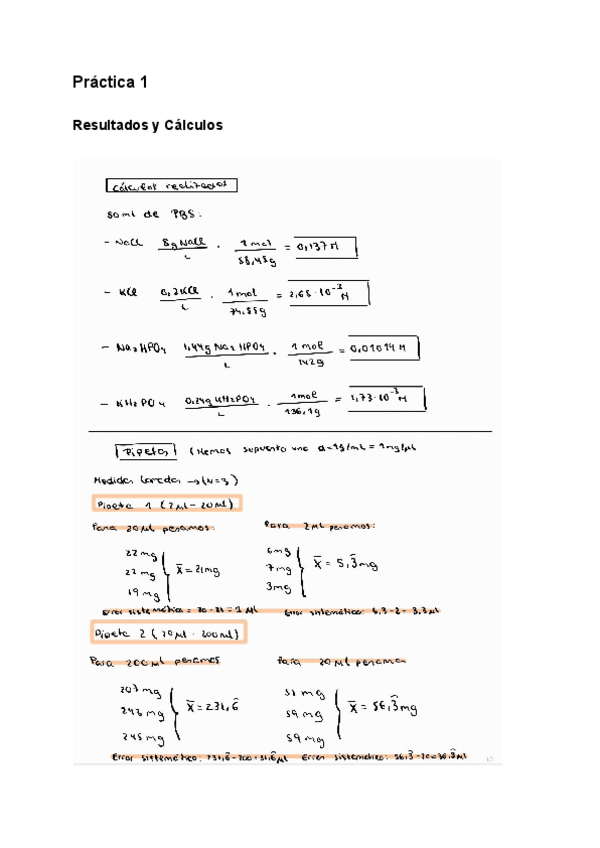 Práctica 1
Resultados y Cálculos
Cálculos realizados
50 ml de PBS:
- NaCl 8g NaCl/L · 1 mol/58,45g = 0,137 M
- KCl 0,2 KCl/L · 1 mol/74.55g = 2,68·10⁻³ M
- Na2HPO4 1,44g Na2HPO4/L · 1 mol/142g = 0,01014 M
- KH2PO4 0.24g KH2PO4/L · 1mol/136,1g = 1,73·10⁻³ M
Pipetas (Hemos supuesto una d=1g/mL = 1mg/µL
Medidas →(N=3)
Pipeta 1 (2µl-20µl)
Para 20µl pesamos: Para 2µl pesamos:
22 mg 6mg
22 mg x̄ = 21mg 7mg x̄ = 5,3̂mg
19 mg 3mg
Error sistemático = 20-21 = 1 µl Error sistemático: 5,3-2 = 3,3µl
Pipeta 2 (20µl-200µl)
Para 200µl pesamos Para 20µl pesamos
203 mg 51 mg
243 mg x̄ = 231,6̂ 59 mg x̄ = 56,3̂mg
245 mg 59 mg
Error sistemático: 231,6̂-200=31,6̂µl Error sistemático: 56,3̂-20=36,3̂µl